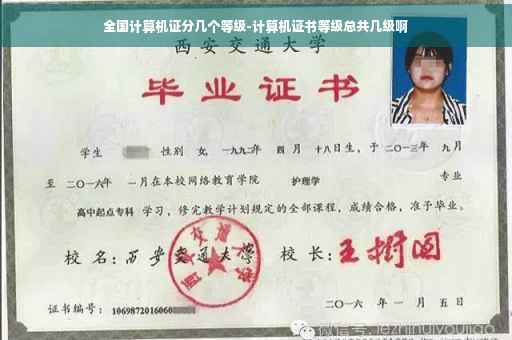 全国计算机证分几个等级-计算机证书等级总共几级啊
西安交通大学
毕业证书
学生 性别 女, 一九九二年 四 月 十八日生, 于 二〇一三年 九月
至 二〇一六年 一月在本校网络教育学院 护理学 专业
高中起点专科 学习, 修完教学计划规定的全部课程, 成绩合格, 准予毕业。
校 名: 西安交通大学 校 长: 王树国
证书编号: 1069872016060
二〇一六 年 一 月 五 日
微信号: jezhihuiyoujiao